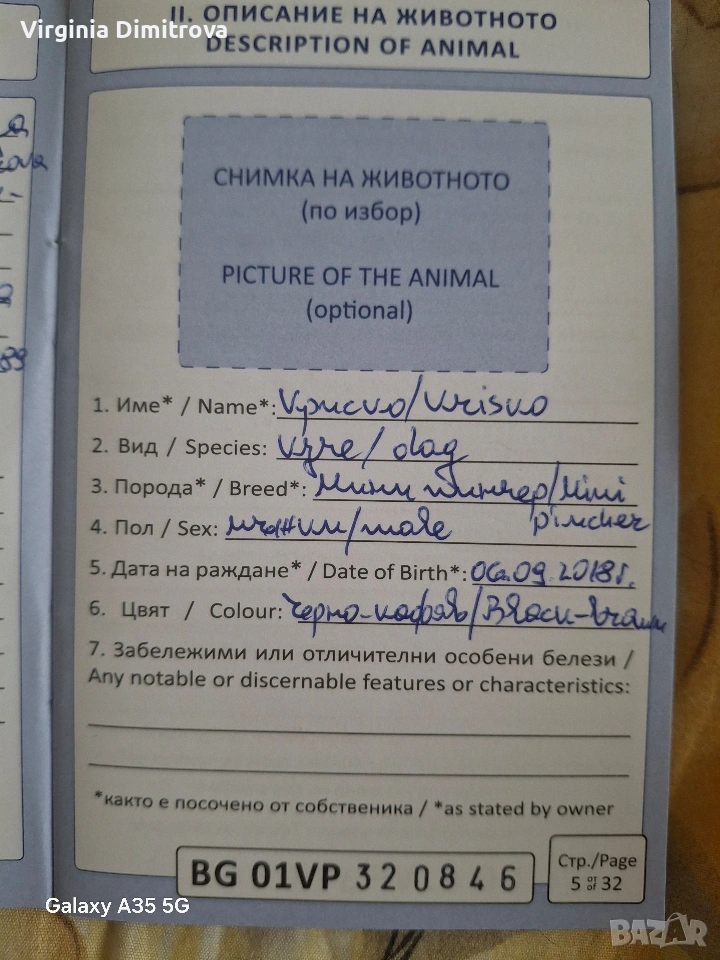 Virginia Dimitrova
II. ОПИСАНИЕ НА ЖИВОТНОТО
DESCRIPTION OF ANIMAL
СНИМКА НА ЖИВОТНОТО
(по избор)
PICTURE OF THE ANIMAL
(optional)
1. Име* / Name*: Криско/Krisko
2. Вид / Species: куче/ dog
3. Порода* / Breed*: Мини пинчер/Mini
pincher
4. Пол / Sex: мъжки/male
5. Дата на раждане* / Date of Birth*: 06.09.2018г.
6. Цвят / Colour: Черно-кафяв/Black-brawn
7. Забележими или отличителни особени белези /
Any notable or discernable features or characteristics:
*както е посочено от собственика / *as stated by owner
BG 01VP 320846
Стр./Page
5 от/of 32
Galaxy A35 5G
BAZAR